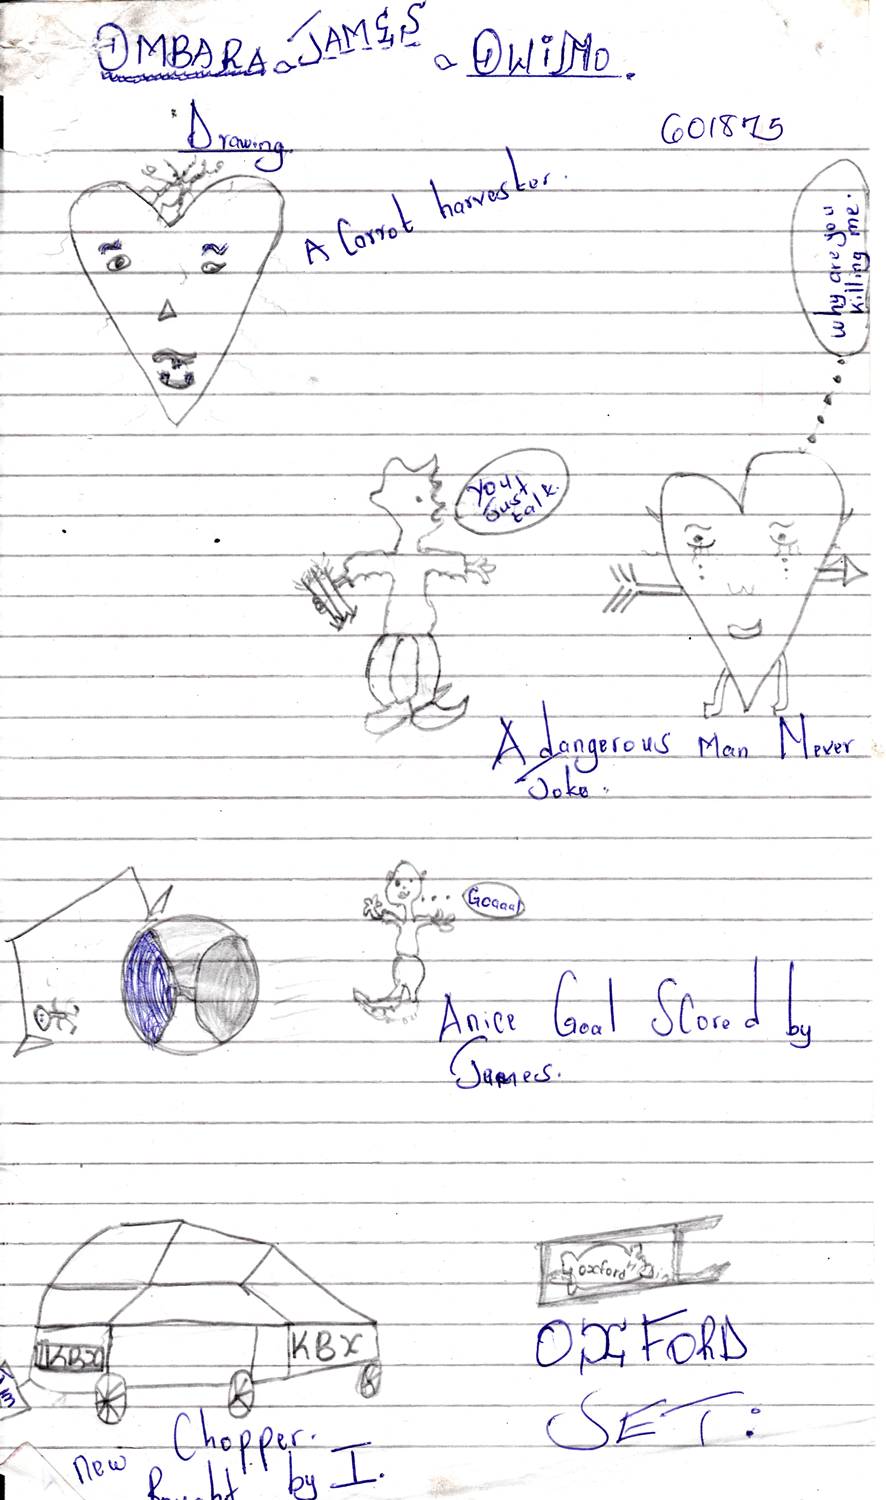 OMBARA JAMES OWINO.
Drawing.
601875
A Carrot harvester.
why are you
killing me.
you
Gust
talk.
A dangerous Man Never
Joke.
Goaaal
A nice Goal Scored by
James.
KBX
KBX
oxford
OXFORD
SET:
new Chopper.
Bought by I.